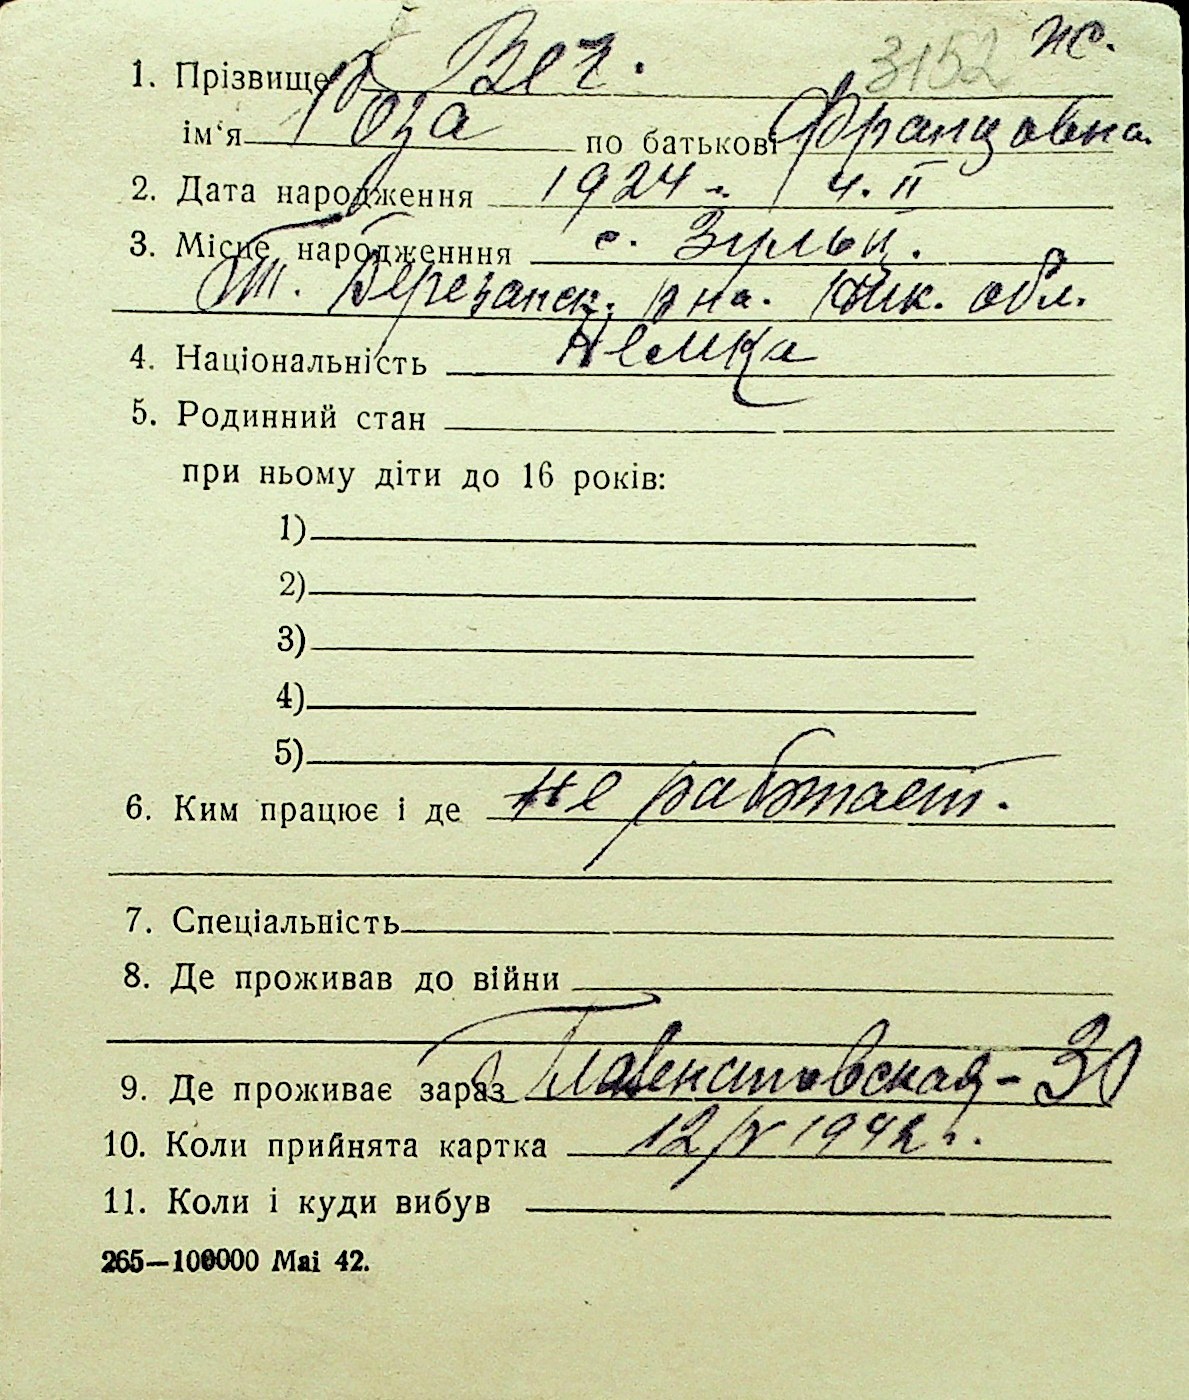 1. Прізвище Вег. 3152 ж.
ім‘я Роза по батькові Францовна.
2. Дата народження 1924 г. 4. II
3. Місце народженння с. Зульц.
Березанск. р на. Ник. обл.
4. Національність Немка
5. Родинний стан
при ньому діти до 16 років:
1)
2)
3)
4)
5)
6. Ким працює і де Не работает.
7. Спеціальність
8. Де проживав до війни
9. Де проживає зараз – 30
10. Коли прийнята картка 12/V 1942 г.
11. Коли і куди вибув
265—100000 Mai 42.